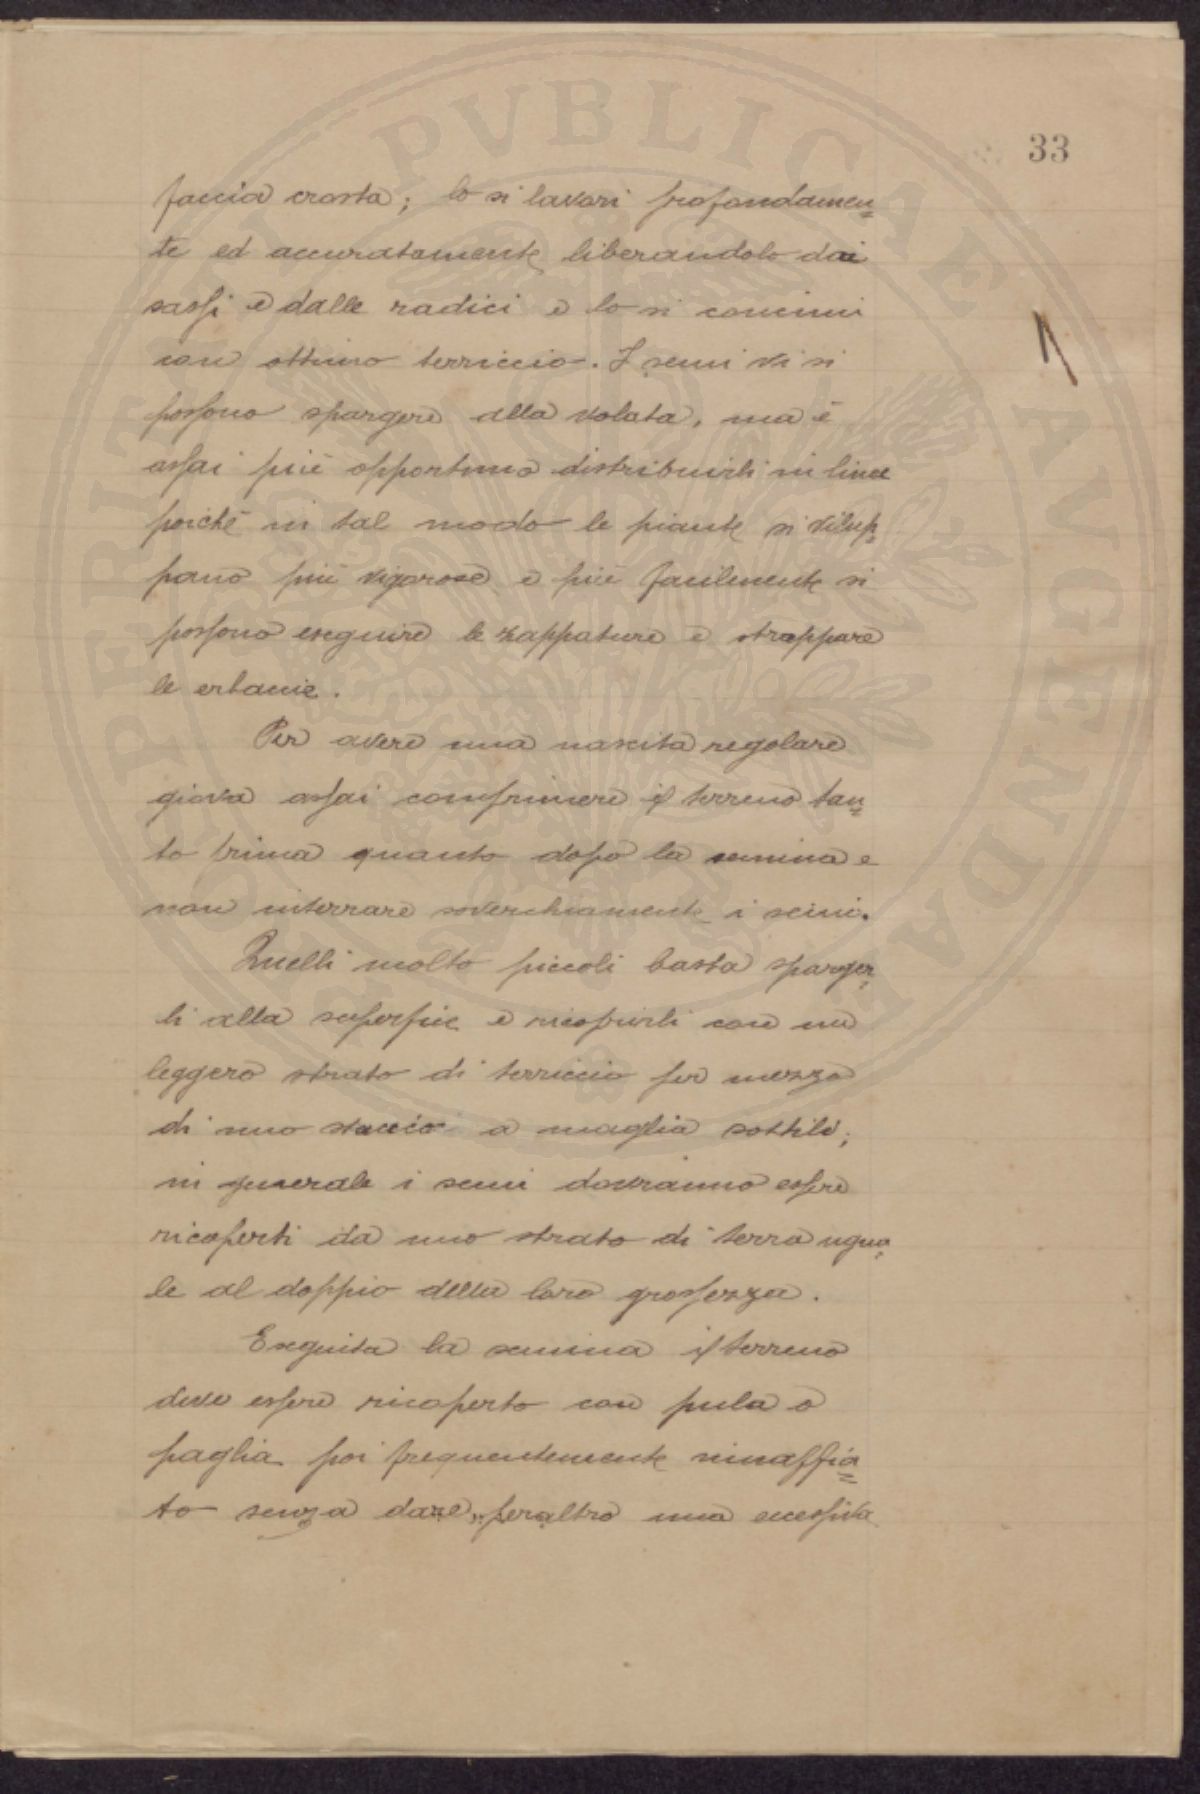 33
faccia crosta; lo si lavori profondamen=
te ed accuratamente liberandolo dai
sassi e dalle radici e lo si concimi
con ottimo terriccio. I semi vi si
possono spargere alla volata, ma è
assai più opportuno distribuirli in linee
poichè in tal modo le piante si svilup=
pano più vigorose e più facilmente si
possono eseguire le zappature e strappare
le erbacce.
Per avere una nascita regolare
giova assai comprimere il terreno tan=
to prima quanto dopo la semina e
non interrare soverchiamente i semi.
Quelli molto piccoli basta sparger=
li alla superficie e ricoprirli con un
leggero strato di terriccio per mezzo
di uno staccio a maglia sottile;
in generale i semi dovranno essere
ricoperti da uno strato di terra ugua=
le al doppio della loro grossezza.
Eseguita la semina il terreno
deve essere ricoperto con pula o
paglia poi frequentemente rinaffia=
to senza dare, peraltro una eccessiva
PERITI PVBLICAE AVGENDAE